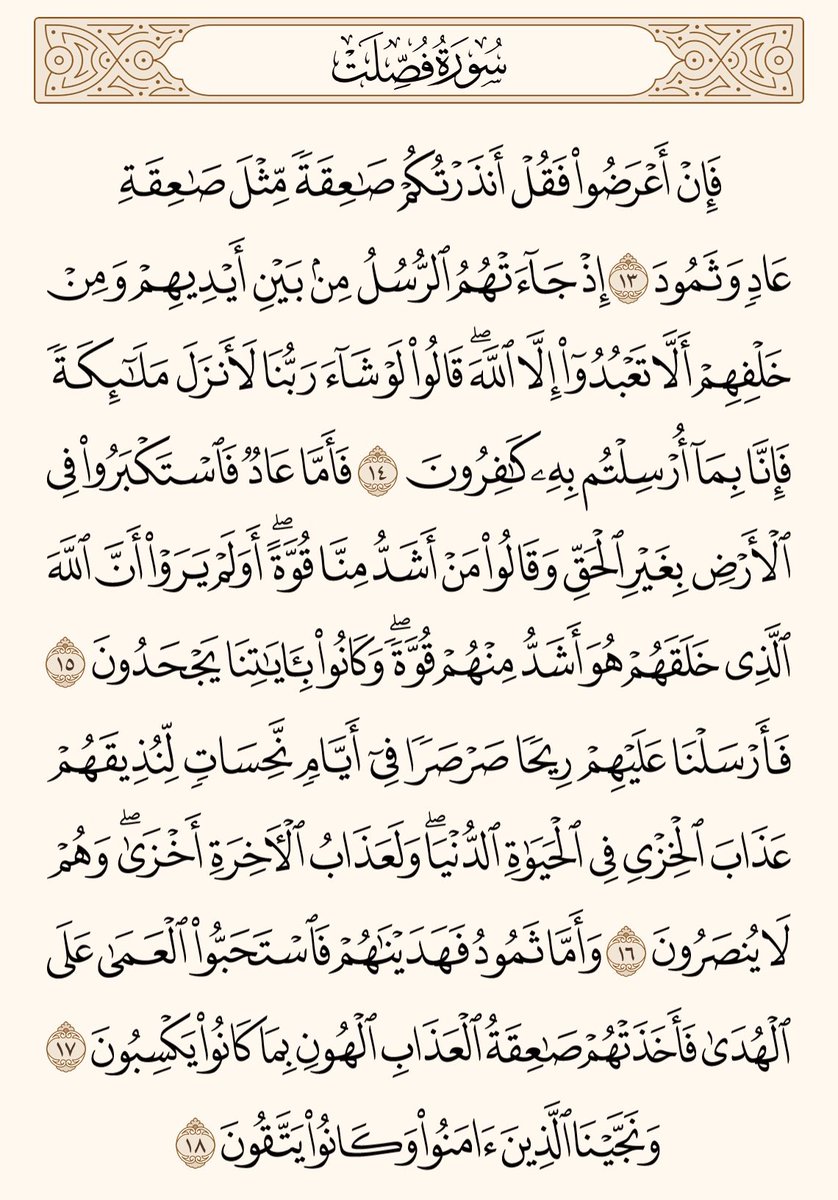 سُورَةُ فُصِّلَتْ
فَإِنْ أَعْرَضُوا۟ فَقُلْ أَنذَرْتُكُمْ صَـٰعِقَةً مِّثْلَ صَـٰعِقَةِ
عَادٍ وَثَمُودَ ١٣ إِذْ جَآءَتْهُمُ ٱلرُّسُلُ مِنۢ بَيْنِ أَيْدِيهِمْ وَمِنْ
خَلْفِهِمْ أَلَّا تَعْبُدُوٓا۟ إِلَّا ٱللَّهَ ۖ قَالُوا۟ لَوْ شَآءَ رَبُّنَا لَأَنزَلَ مَلَـٰٓئِكَةً
فَإِنَّا بِمَآ أُرْسِلْتُم بِهِۦ كَـٰفِرُونَ ١٤ فَأَمَّا عَادٌ فَٱسْتَكْبَرُوا۟ فِى
ٱلْأَرْضِ بِغَيْرِ ٱلْحَقِّ وَقَالُوا۟ مَنْ أَشَدُّ مِنَّا قُوَّةً ۖ أَوَلَمْ يَرَوْا۟ أَنَّ ٱللَّهَ
ٱلَّذِى خَلَقَهُمْ هُوَ أَشَدُّ مِنْهُمْ قُوَّةً ۖ وَكَانُوا۟ بِـَٔايَـٰتِنَا يَجْحَدُونَ ١٥
فَأَرْسَلْنَا عَلَيْهِمْ رِيحًا صَرْصَرًا فِىٓ أَيَّامٍ نَّحِسَاتٍ لِّنُذِيقَهُمْ
عَذَابَ ٱلْخِزْىِ فِى ٱلْحَيَوٰةِ ٱلدُّنْيَا ۖ وَلَعَذَابُ ٱلْـَٔاخِرَةِ أَخْزَىٰ ۖ وَهُمْ
لَا يُنصَرُونَ ١٦ وَأَمَّا ثَمُودُ فَهَدَيْنَـٰهُمْ فَٱسْتَحَبُّوا۟ ٱلْعَمَىٰ عَلَى
ٱلْهُدَىٰ فَأَخَذَتْهُمْ صَـٰعِقَةُ ٱلْعَذَابِ ٱلْهُونِ بِمَا كَانُوا۟ يَكْسِبُونَ ١٧
وَنَجَّيْنَا ٱلَّذِينَ ءَامَنُوا۟ وَكَانُوا۟ يَتَّقُونَ ١٨